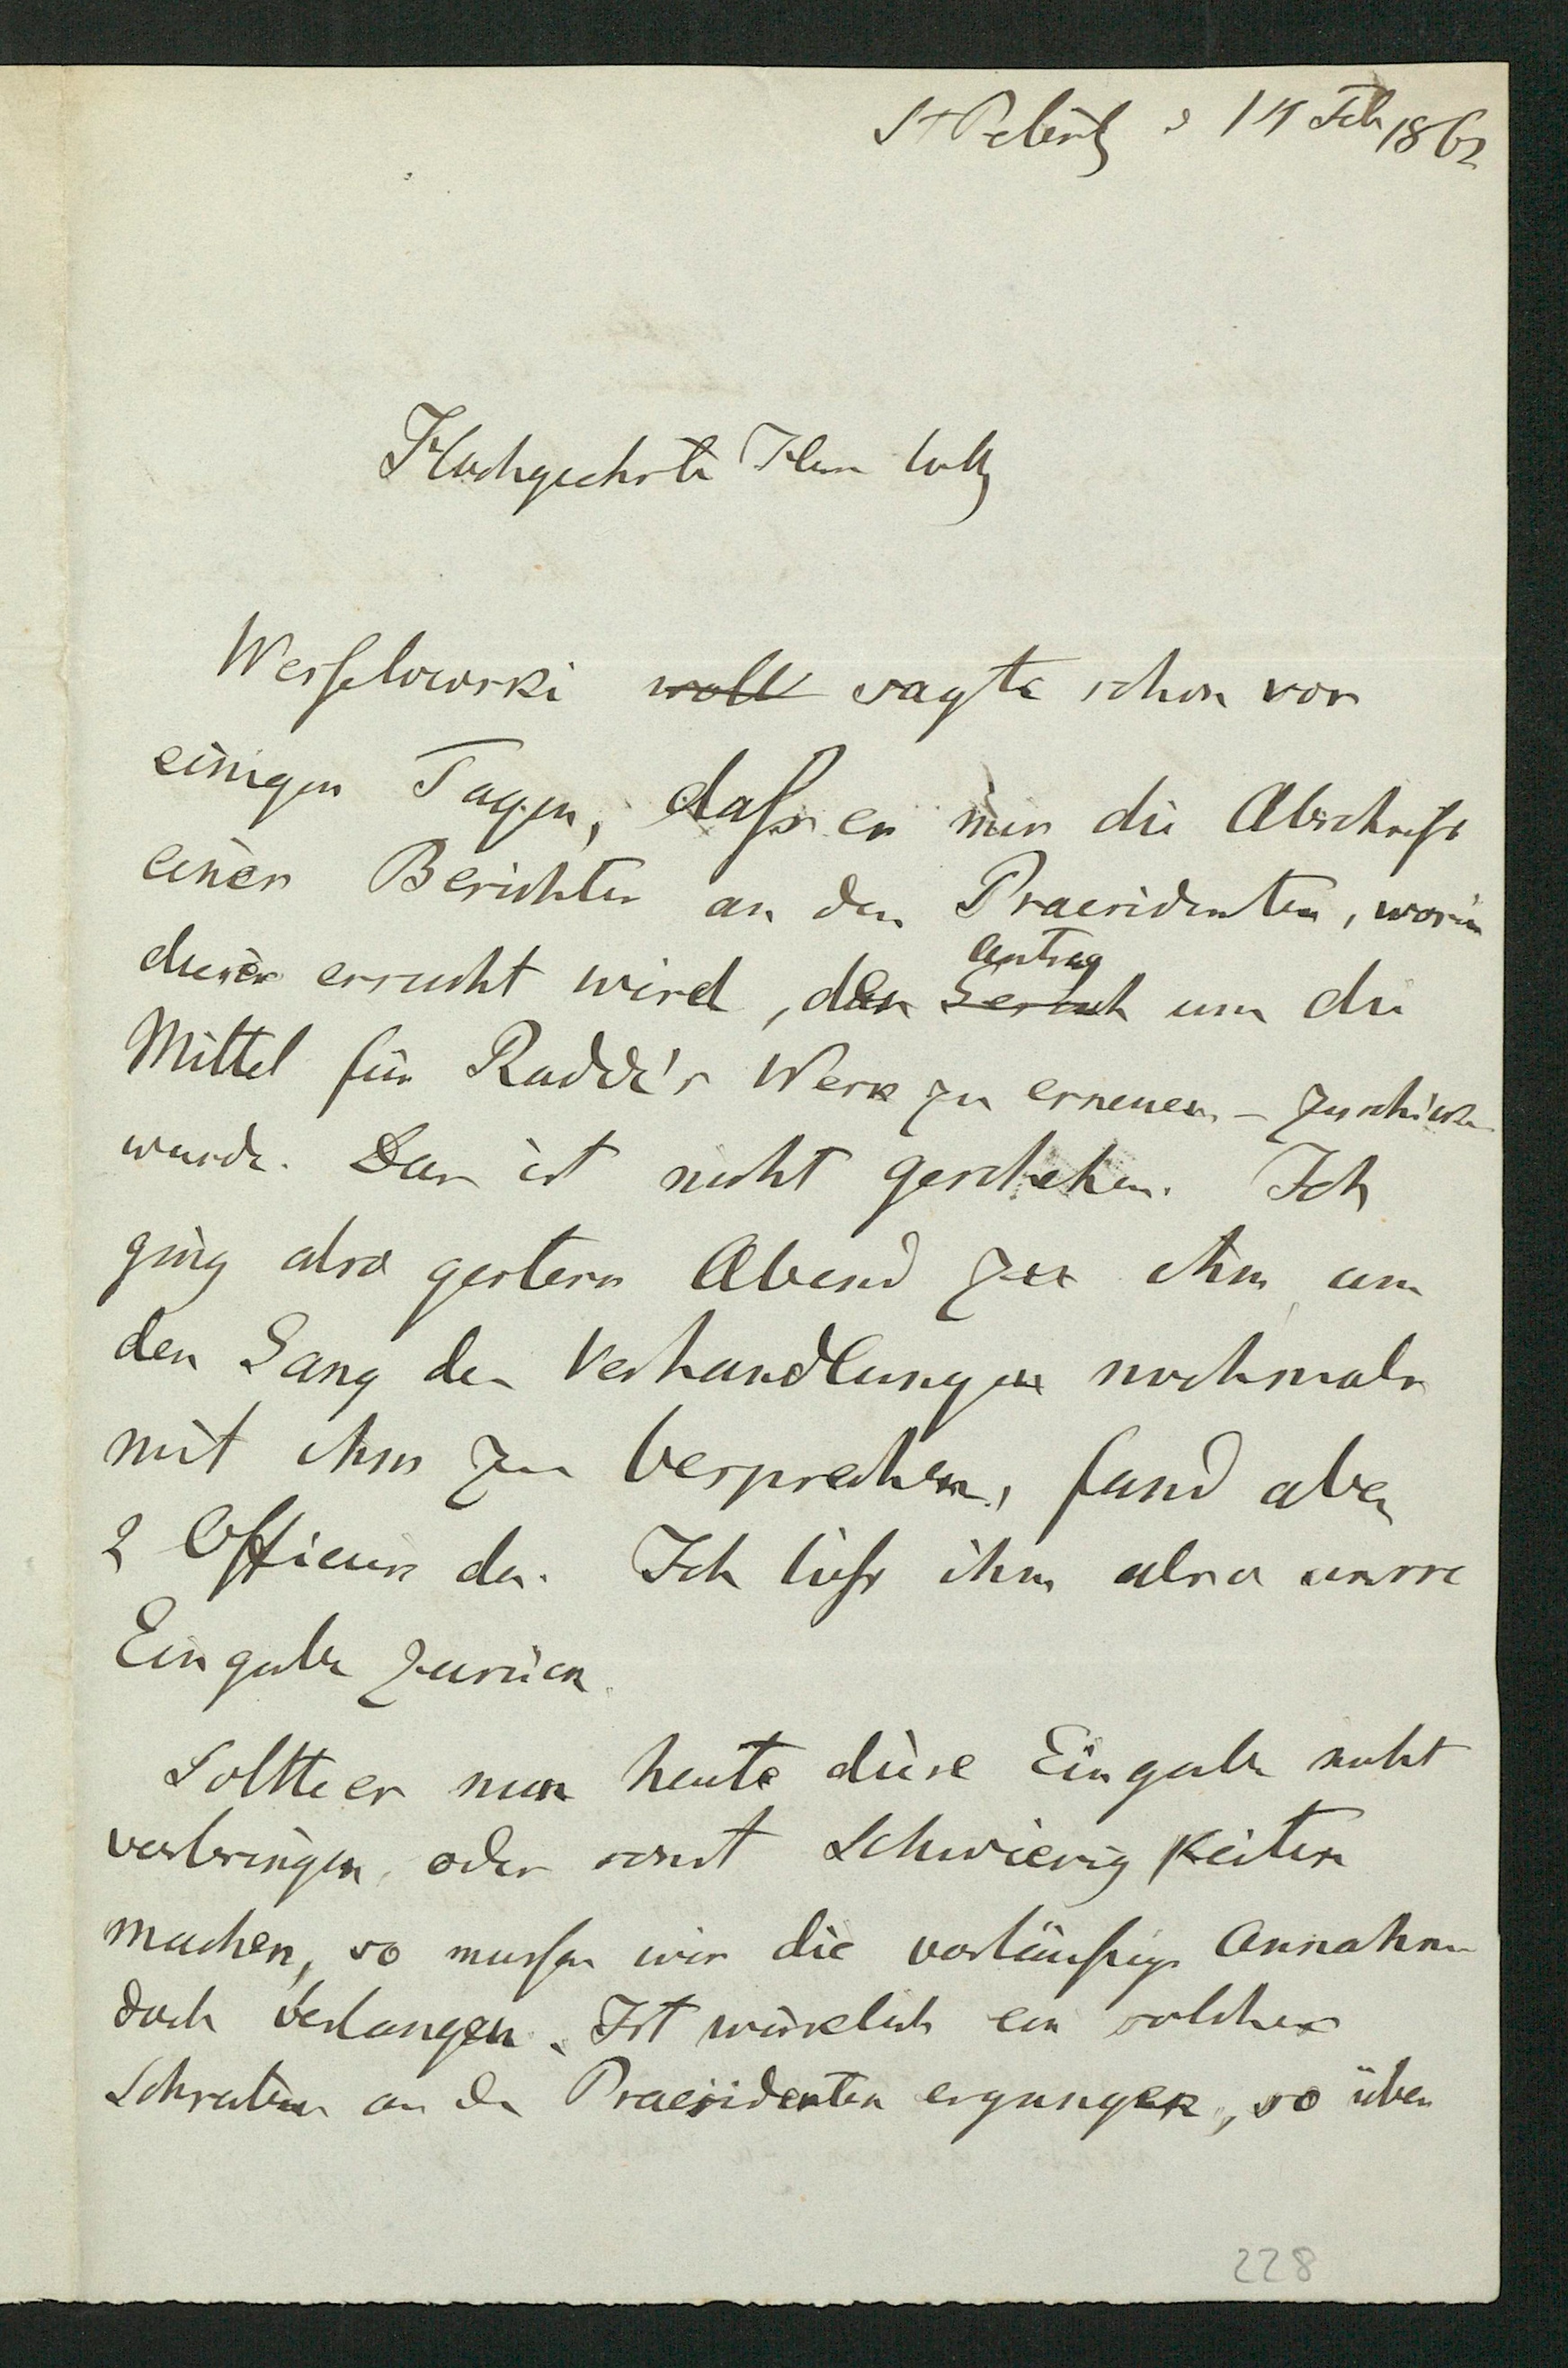 St Petersb d 14 Feb 1862
Hochgeehrter Herr Coll
Wesselowski woll sagte schon vor
einigen Tagen, dass er mir die Abschrift
eines Berichtes an den Praesidenten, worin
dieser ersucht wird, den Gesuch Antrag um die
Mittel für Radde's Werk zu erneuern – zuschicken
wurde. Das ist nicht geschehen. Ich
ging also gestern Abend zu ihm um
den Gang der Verhandlungen nochmals
mit ihm zu besprechen, fand aber
2 Officiere da. Ich liess ihm also unsre
Eingabe zurück.
Sollte er nun heute diese Eingabe nicht
vorbringen oder sonst Schwierigkeiten
machen, so mussen wir die vorläufige Annahme
doch verlangen. Ist wirklich ein solches
Schreiben an den Praesidenten ergangen, so über
228